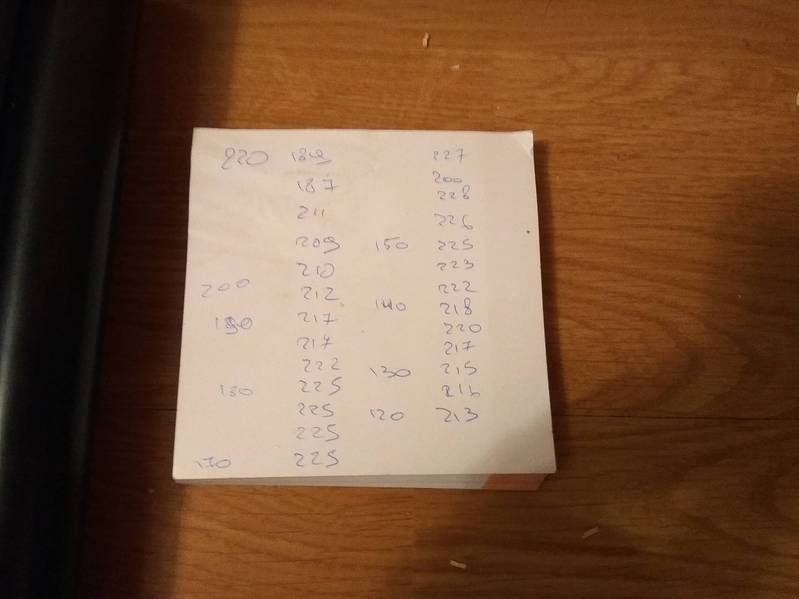 220 189
187
211
209
210
200 212
190 217
217
222
180 225
225
225
170 225
227
200
228
226
150 225
223
222
140 218
220
217
130 215
216
120 213